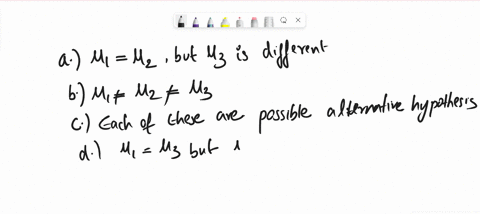 a.) μ₁ = μ₂, but μ₃ is different
b.) μ₁ ≠ μ₂ ≠ μ₃
c.) Each of these are possible alternative hypothesis
d.) μ₁ = μ₃ but